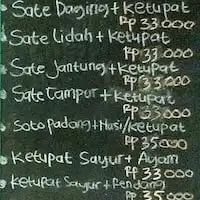 Sate Daging + Ketupat
Rp 33.000
Sate Lidah + Ketupat
Rp 33.000
Sate Jantung + Ketupat
Rp 33.000
Sate Campur + Ketupat
Rp 33.000
Soto Padang + Nasi/Ketupat
Rp 35.000
Ketupat Sayur + Ayam
Rp 33.000
Ketupat Sayur + Rendang
Rp 35.000